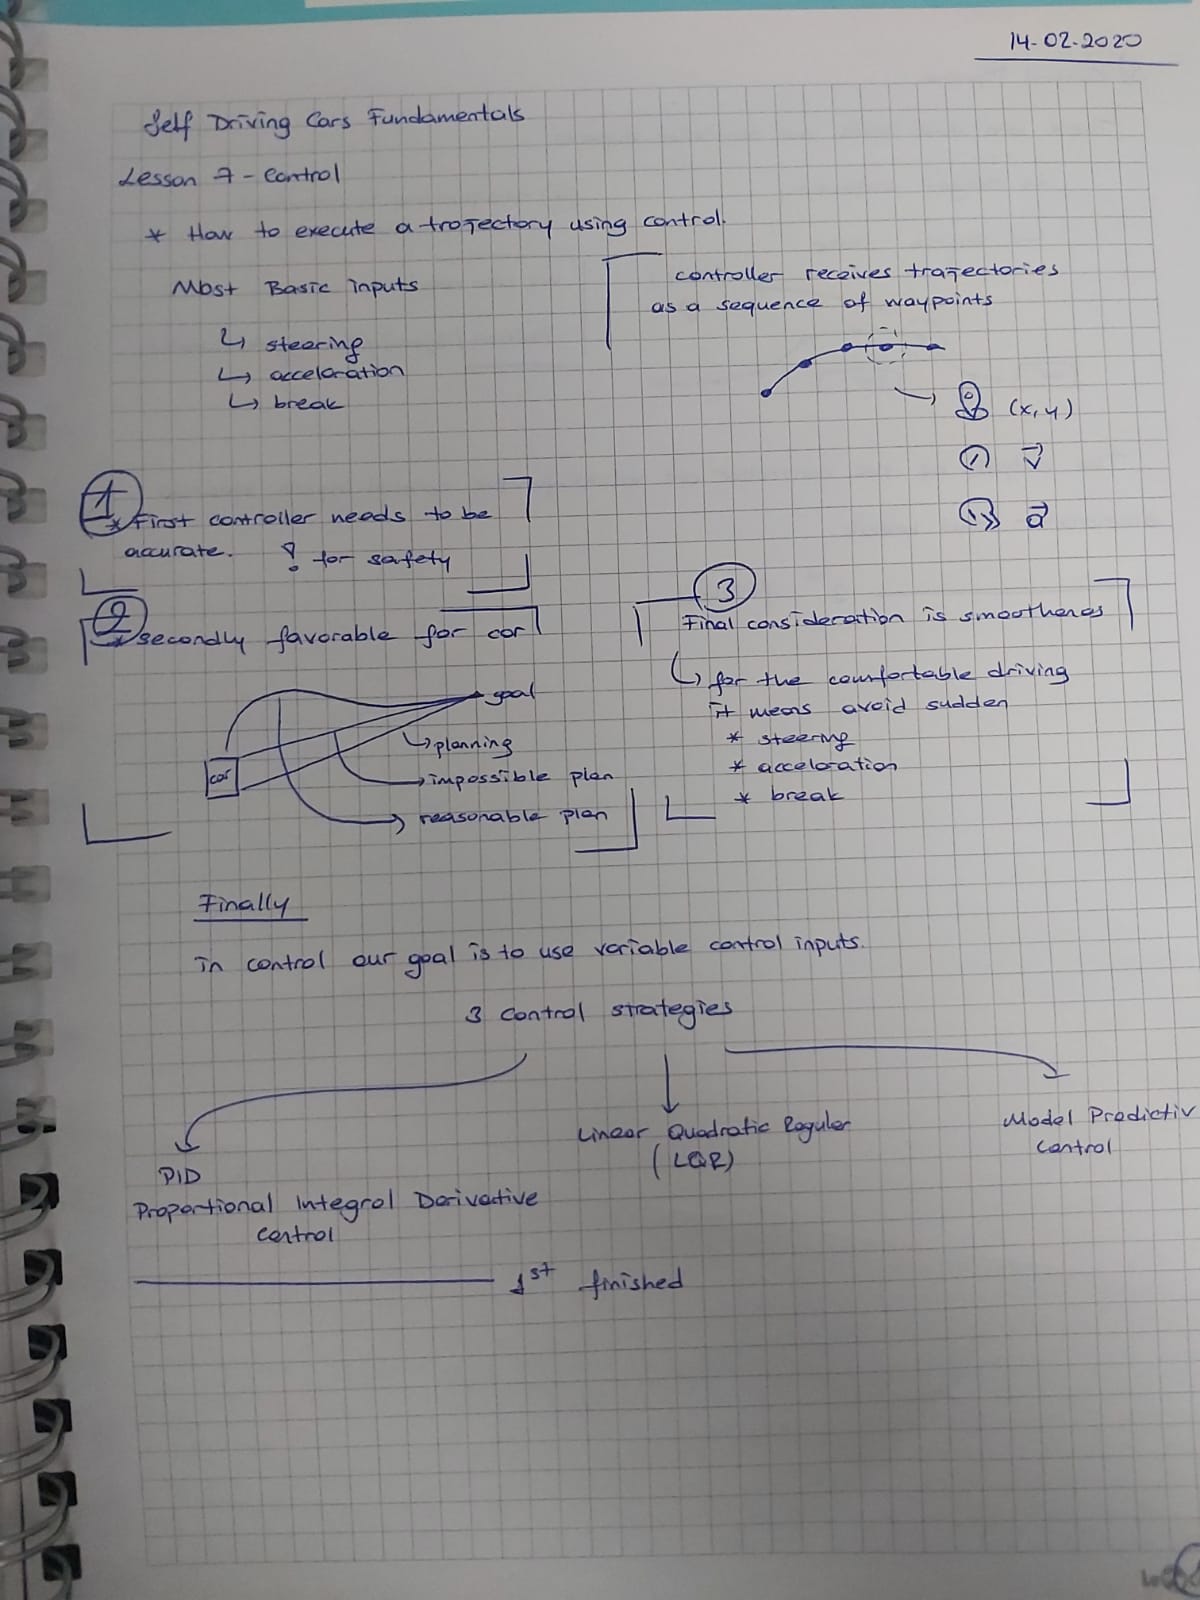 14-02-2020
Self Driving Cars Fundamentals
Lesson 7 - Control
* How to execute a trajectory using control.
Most Basic inputs
↳ steering
↳ acceleration
↳ break
controller receives trajectories
as a sequence of waypoints
(x, y)
v
a
1
* First controller needs to be
accurate. ! for safety
2
* secondly favorable for car
goal
car
↳ planning
→ impossible plan
→ reasonable plan
3
Final consideration is smoothenes
↳ for the comfortable driving
it means avoid sudden
* steering
* acceleration
* break
Finally
in control our goal is to use variable control inputs.
3 control strategies
PID
Proportional Integral Derivative
control
Linear Quadratic Reguler
(LQR)
Model Predictiv
control
1st finished